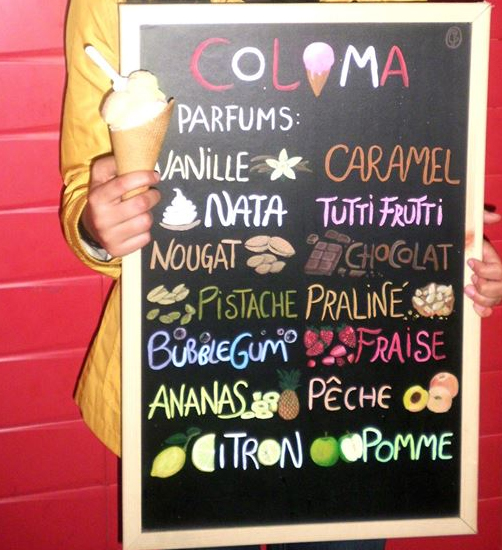 COLOMA
PARFUMS:
VANILLE CARAMEL
NATA TUTTI FRUTTI
NOUGAT CHOCOLAT
PISTACHE PRALINÉ
BUBBLEGUM FRAISE
ANANAS PÊCHE
CITRON POMME